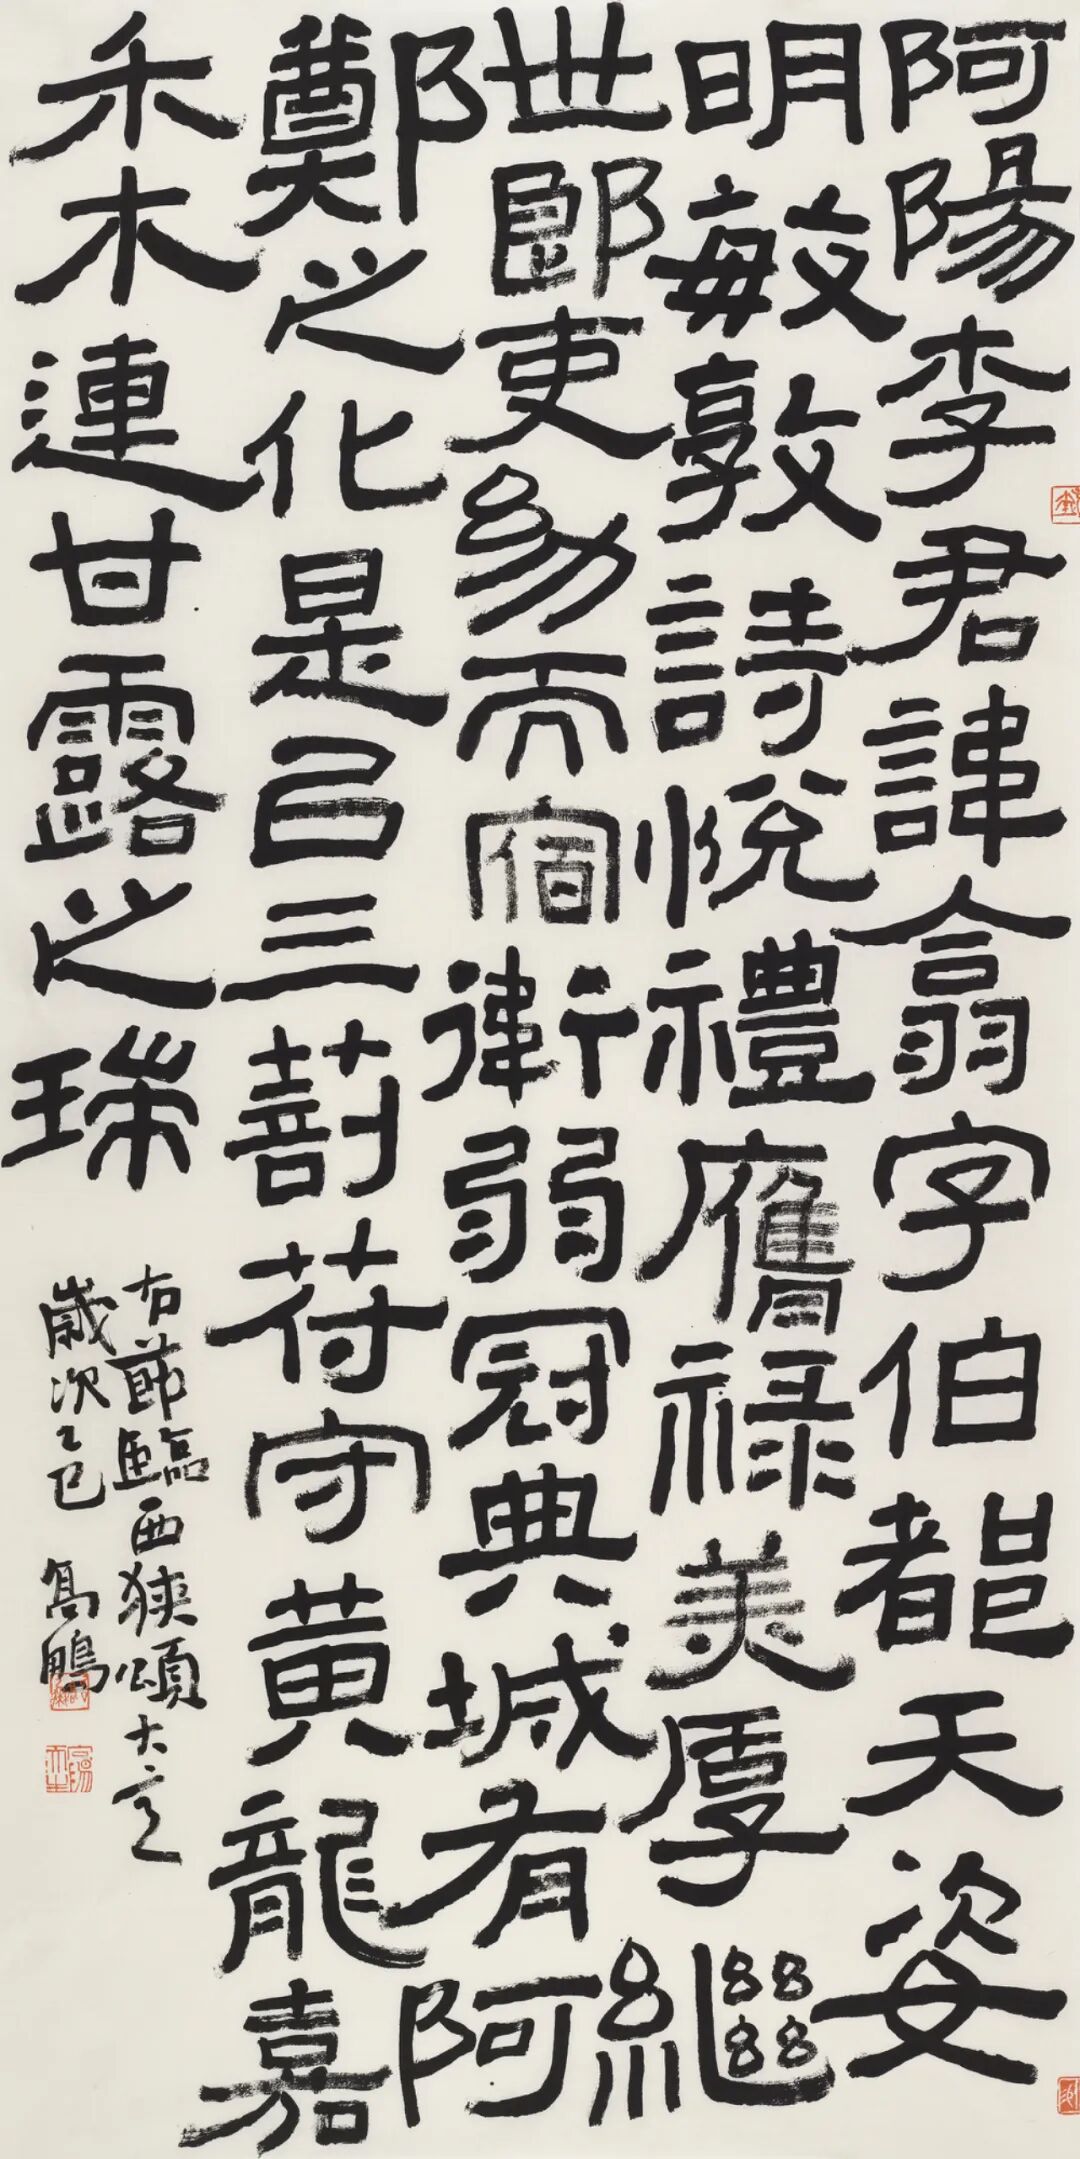 阿陽李君諱翕字伯都天姿
明敏敦詩悅禮膺祿美厚繼
世郎吏幼而宿衛弱冠典城有阿
鄭之化是以三剖符守黃龍嘉
禾木連甘露之瑞
右節臨西狹頌大意
歲次乙巳 高鵬